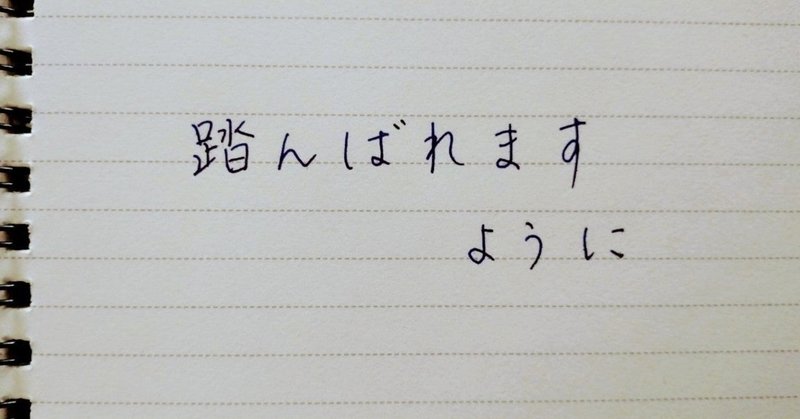 踏んばれます
ように